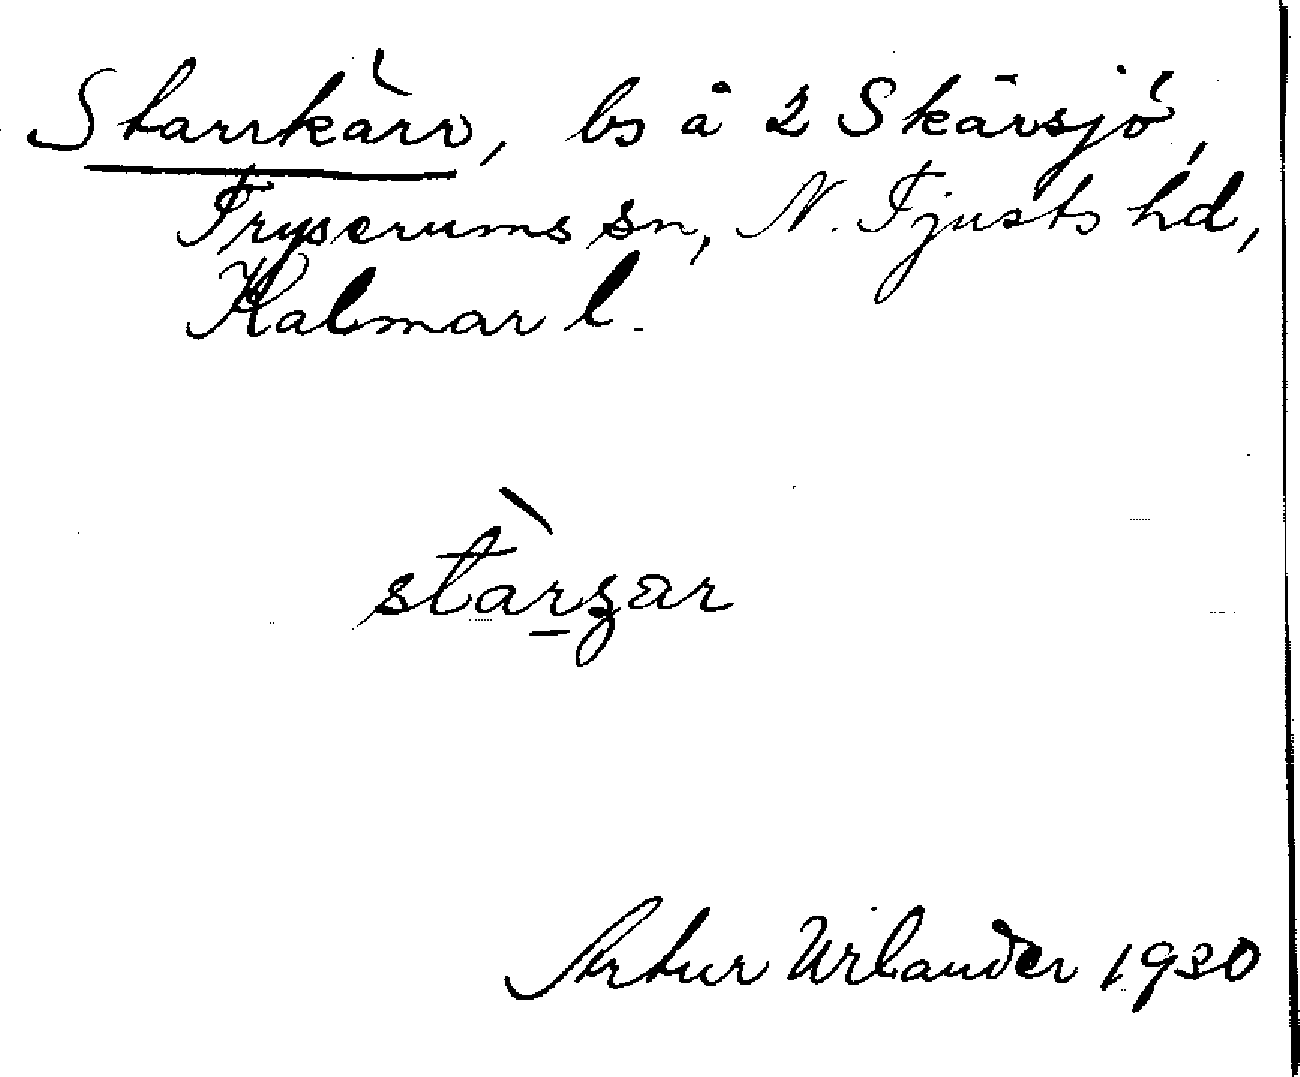 Starrkärr, bs å 2 Skärsjö,
Tryserums sn, N. Tjusts hd,
Kalmar l.
Artur Urlander 1930